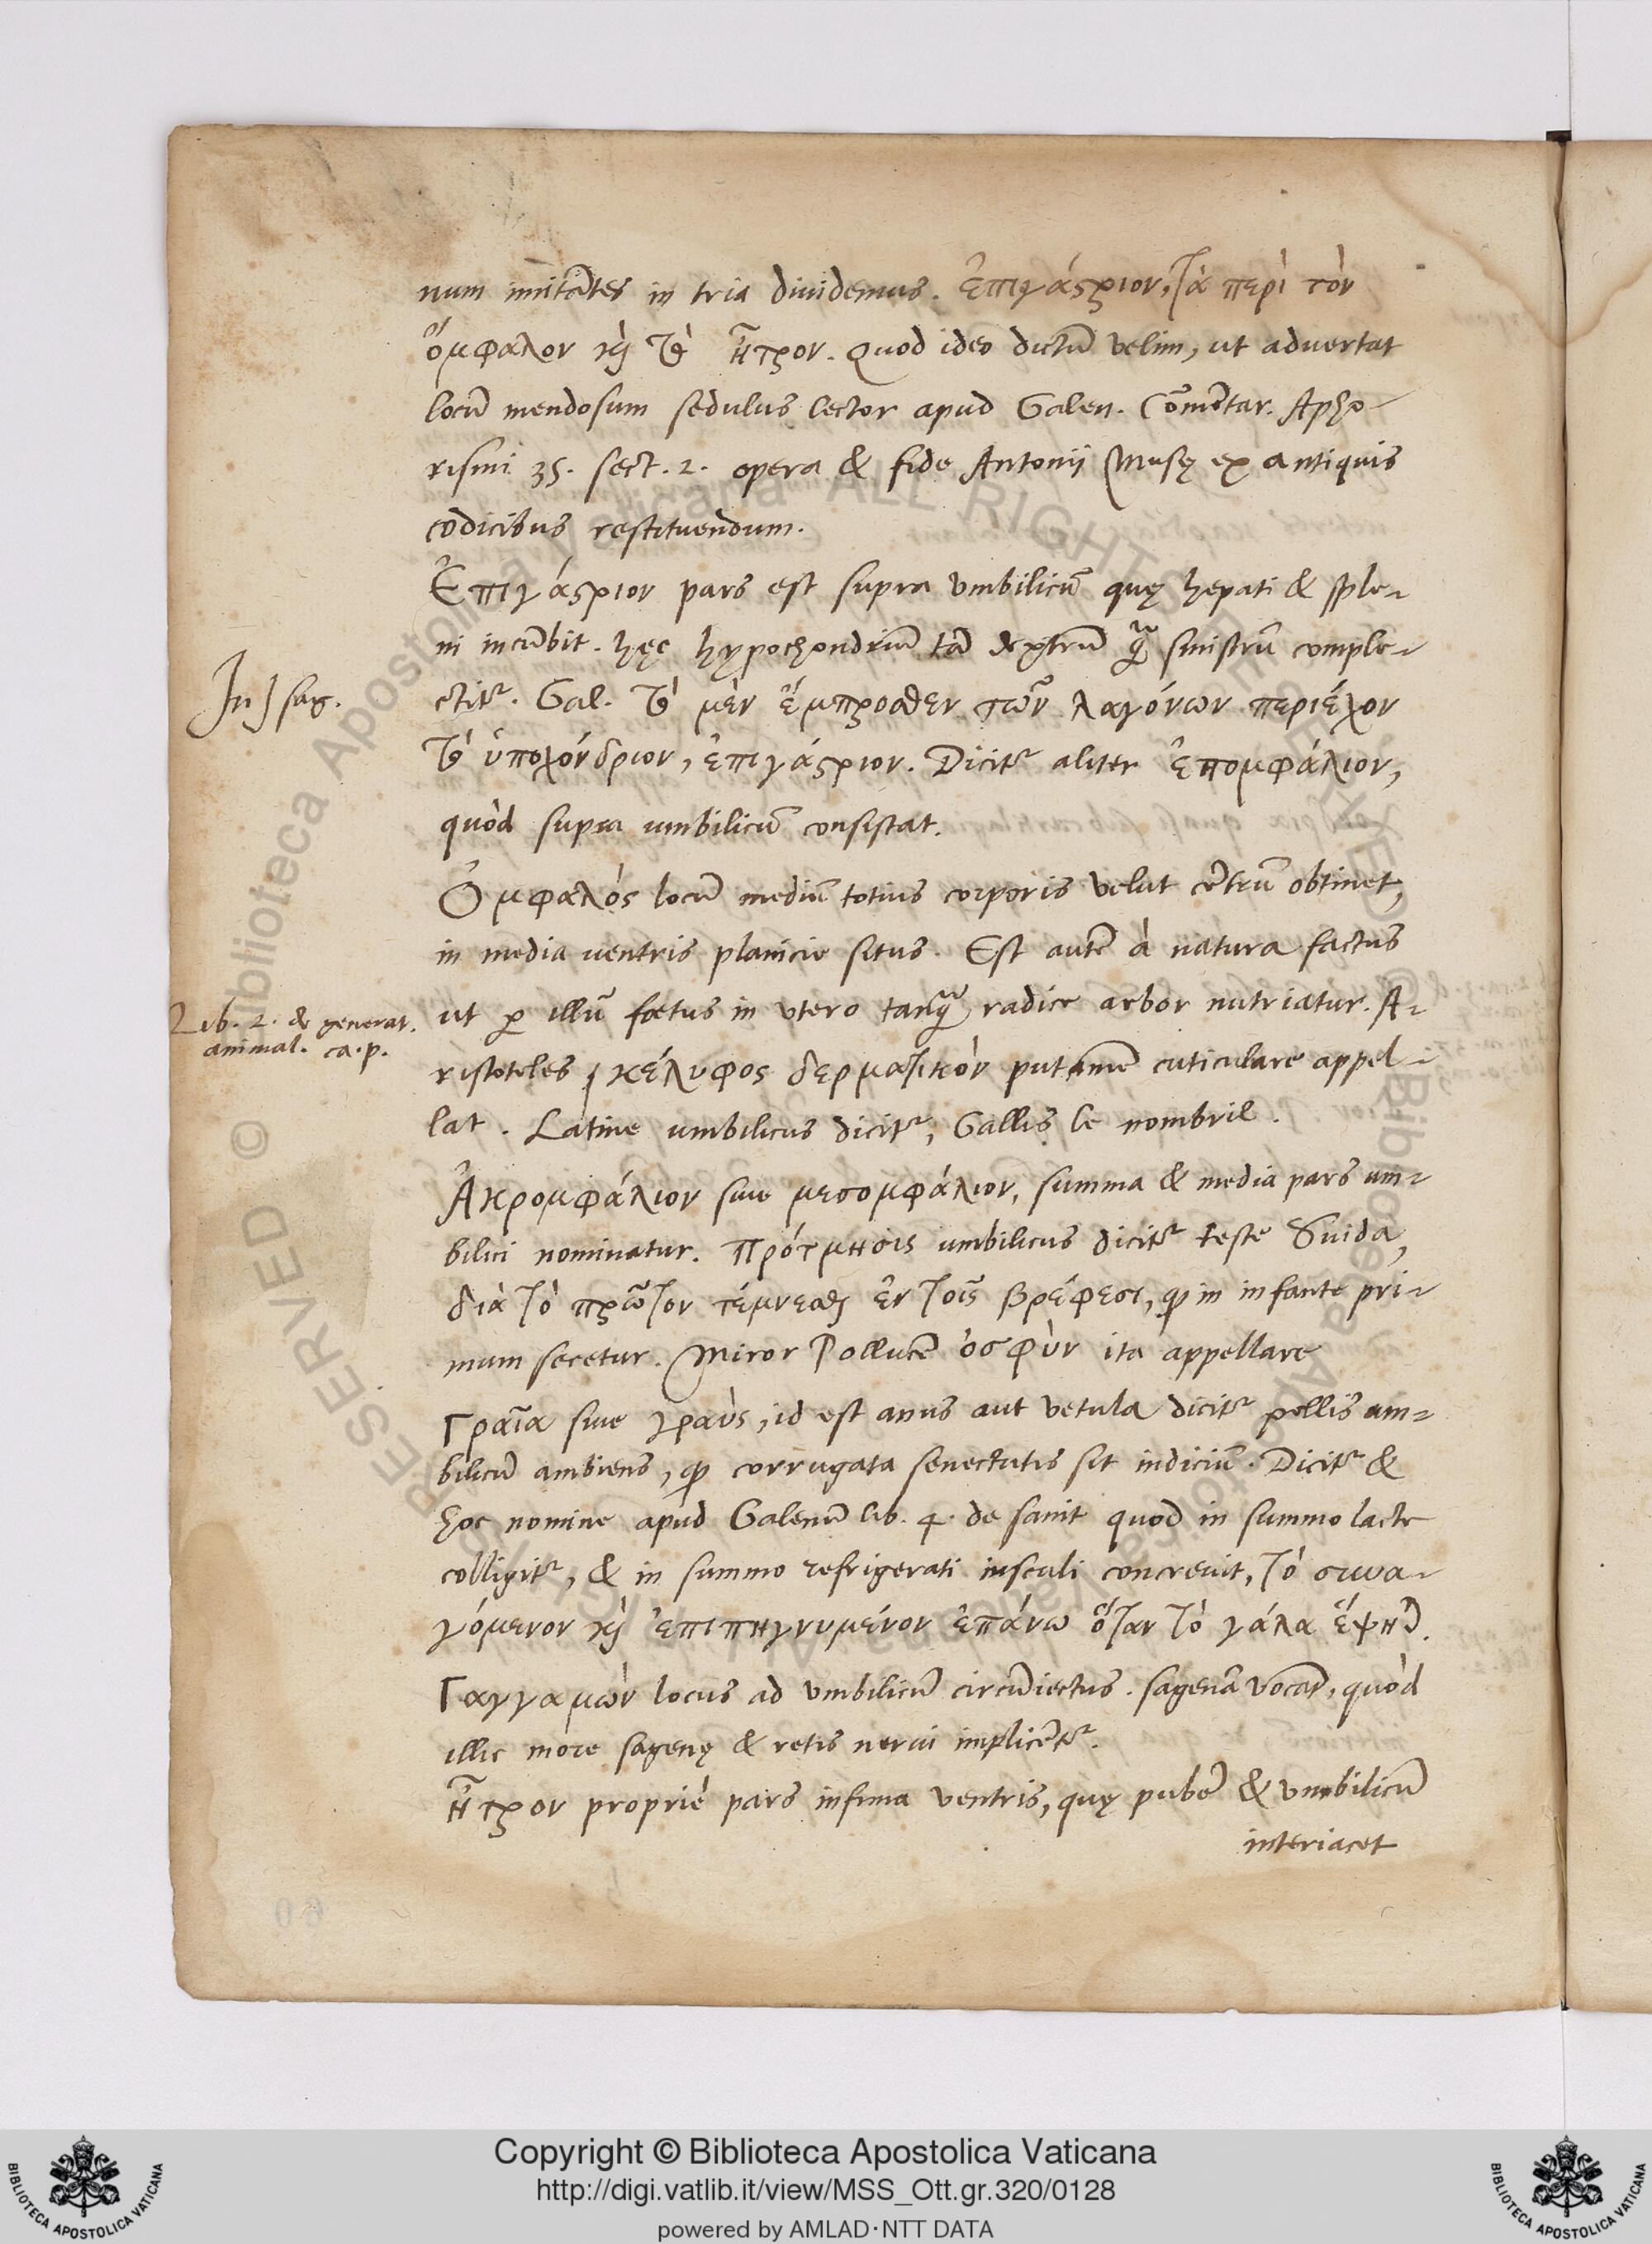 num imitātes in tria diuidemus. Ἐπιγάστριον, τὰ περὶ τὸν
ὄμφαλον καὶ τὸ ἦτρον. Quod ideo dictū velim, ut aduertat
locū mendosum sedulus lector apud Galen. Cōmētar. Apho-
rismi 35. sect. 2. opera & fide Antonii Musę ex antiquis
codicibus restituendum.
Ἐπιγάστριον pars est supra vmbilicū quę hepati & sple-
ni incūbit. hęc hypochondriū tā dextrū quā sinistrū comple-
In Isag.
ctitr. Gal. τὸ μὲν ἔμπροσθεν τῶν λαγόνων περιέχον
τὸ ὑποχόνδριον, ἐπιγάστριον. Dicitr aliter ἐπομφάλιον,
quòd supra umbilicū consistat.
Ὀμφαλός locū mediū totius corporis velut cētrū obtinet,
in media uentris planicie situs. Est autē à natura factus
Lib. 2. de generat.
animal. ca. p.
ut p illū foetus in vtero tanquā radice arbor nutriatur. A-
ristoteles κέλυφος δερματικὸν putamē cuticulare appel-
lat. Latine umbilicus dicitr, Gallis le nombril.
Ἀκρομφάλιον siue μεσομφάλιον, summa & media pars um-
bilici nominatur. Πρότμησις umbilicus dicitr teste Suida,
διὰ τὸ πρῶτον τέμνεσθαι ἐν τοῖς βρέφεσι, quod in infante pri-
mum secetur. Miror Pollucē ὀσφὺν ita appellare
Γραῖα siue γραὺς, id est anus aut vetula dicitr pellis um-
bilicū ambiens, quod corrugata senectutis sit indiciū. Dicitr &
hoc nomine apud Galenū lib. 4. de sanit quod in summo lacte
colligitr, & in summo refrigerati iusculi concreuit, τὸ συνα-
γόμενον καὶ ἐπιπηγνυμένον ἐπάνω ὅταν τὸ γάλα ἕψηται.
Γαγγαμὼν locus ad vmbilicū circūiectus. sagenā vocāt, quòd
illic more sagenę & retis nerui implicētr.
Ἦτρον propriè pars infima ventris, quę pubē & vmbilicū
interiacet
Copyright © Biblioteca Apostolica Vaticana
http://digi.vatlib.it/view/MSS_Ott.gr.320/0128
powered by AMLAD·NTT DATA